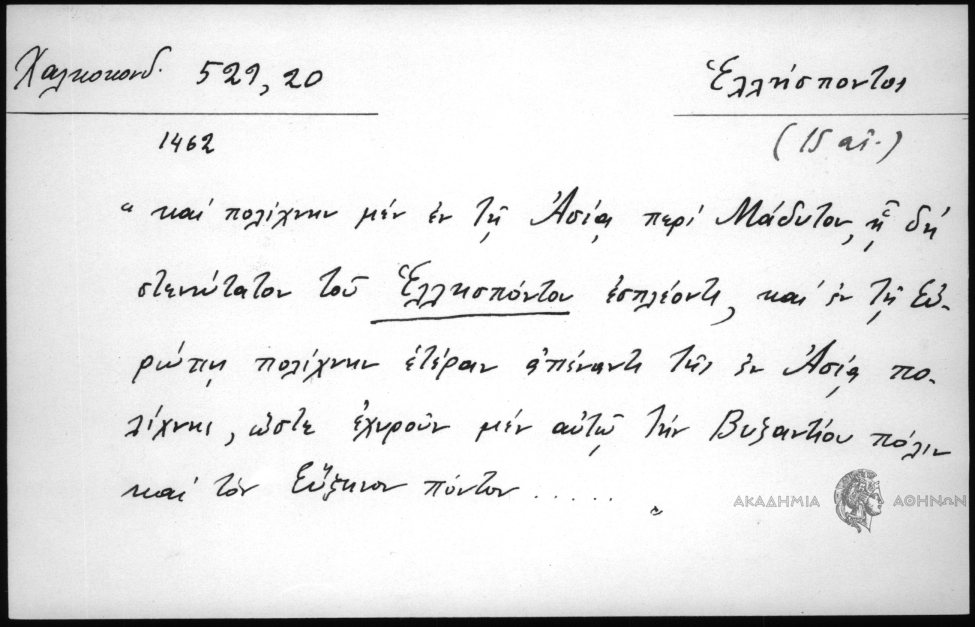 Χαλκοκονδ. 529,20
Ἑλλήσποντος
1462
(15 αἰ.)
" καί πολίχνην μέν ἐν τῇ Ἀσίᾳ περί Μάδυτον, ᾗ δή
στενώτατον τοῦ Ἑλλησπόντου ἐσπλέοντι, καί ἐν τῇ Εὐ-
ρώπῃ πολίχνην ἑτέραν ἀπέναντι τῆς ἐν Ἀσίᾳ πο-
λίχνης, ὥστε ἐχυροῦν μέν αὐτῷ τήν Βυζαντίου πόλιν
καί τόν Εὔξεινον πόντον ...... "
ΑΚΑΔΗΜΙΑ ΑΘΗΝΩΝ